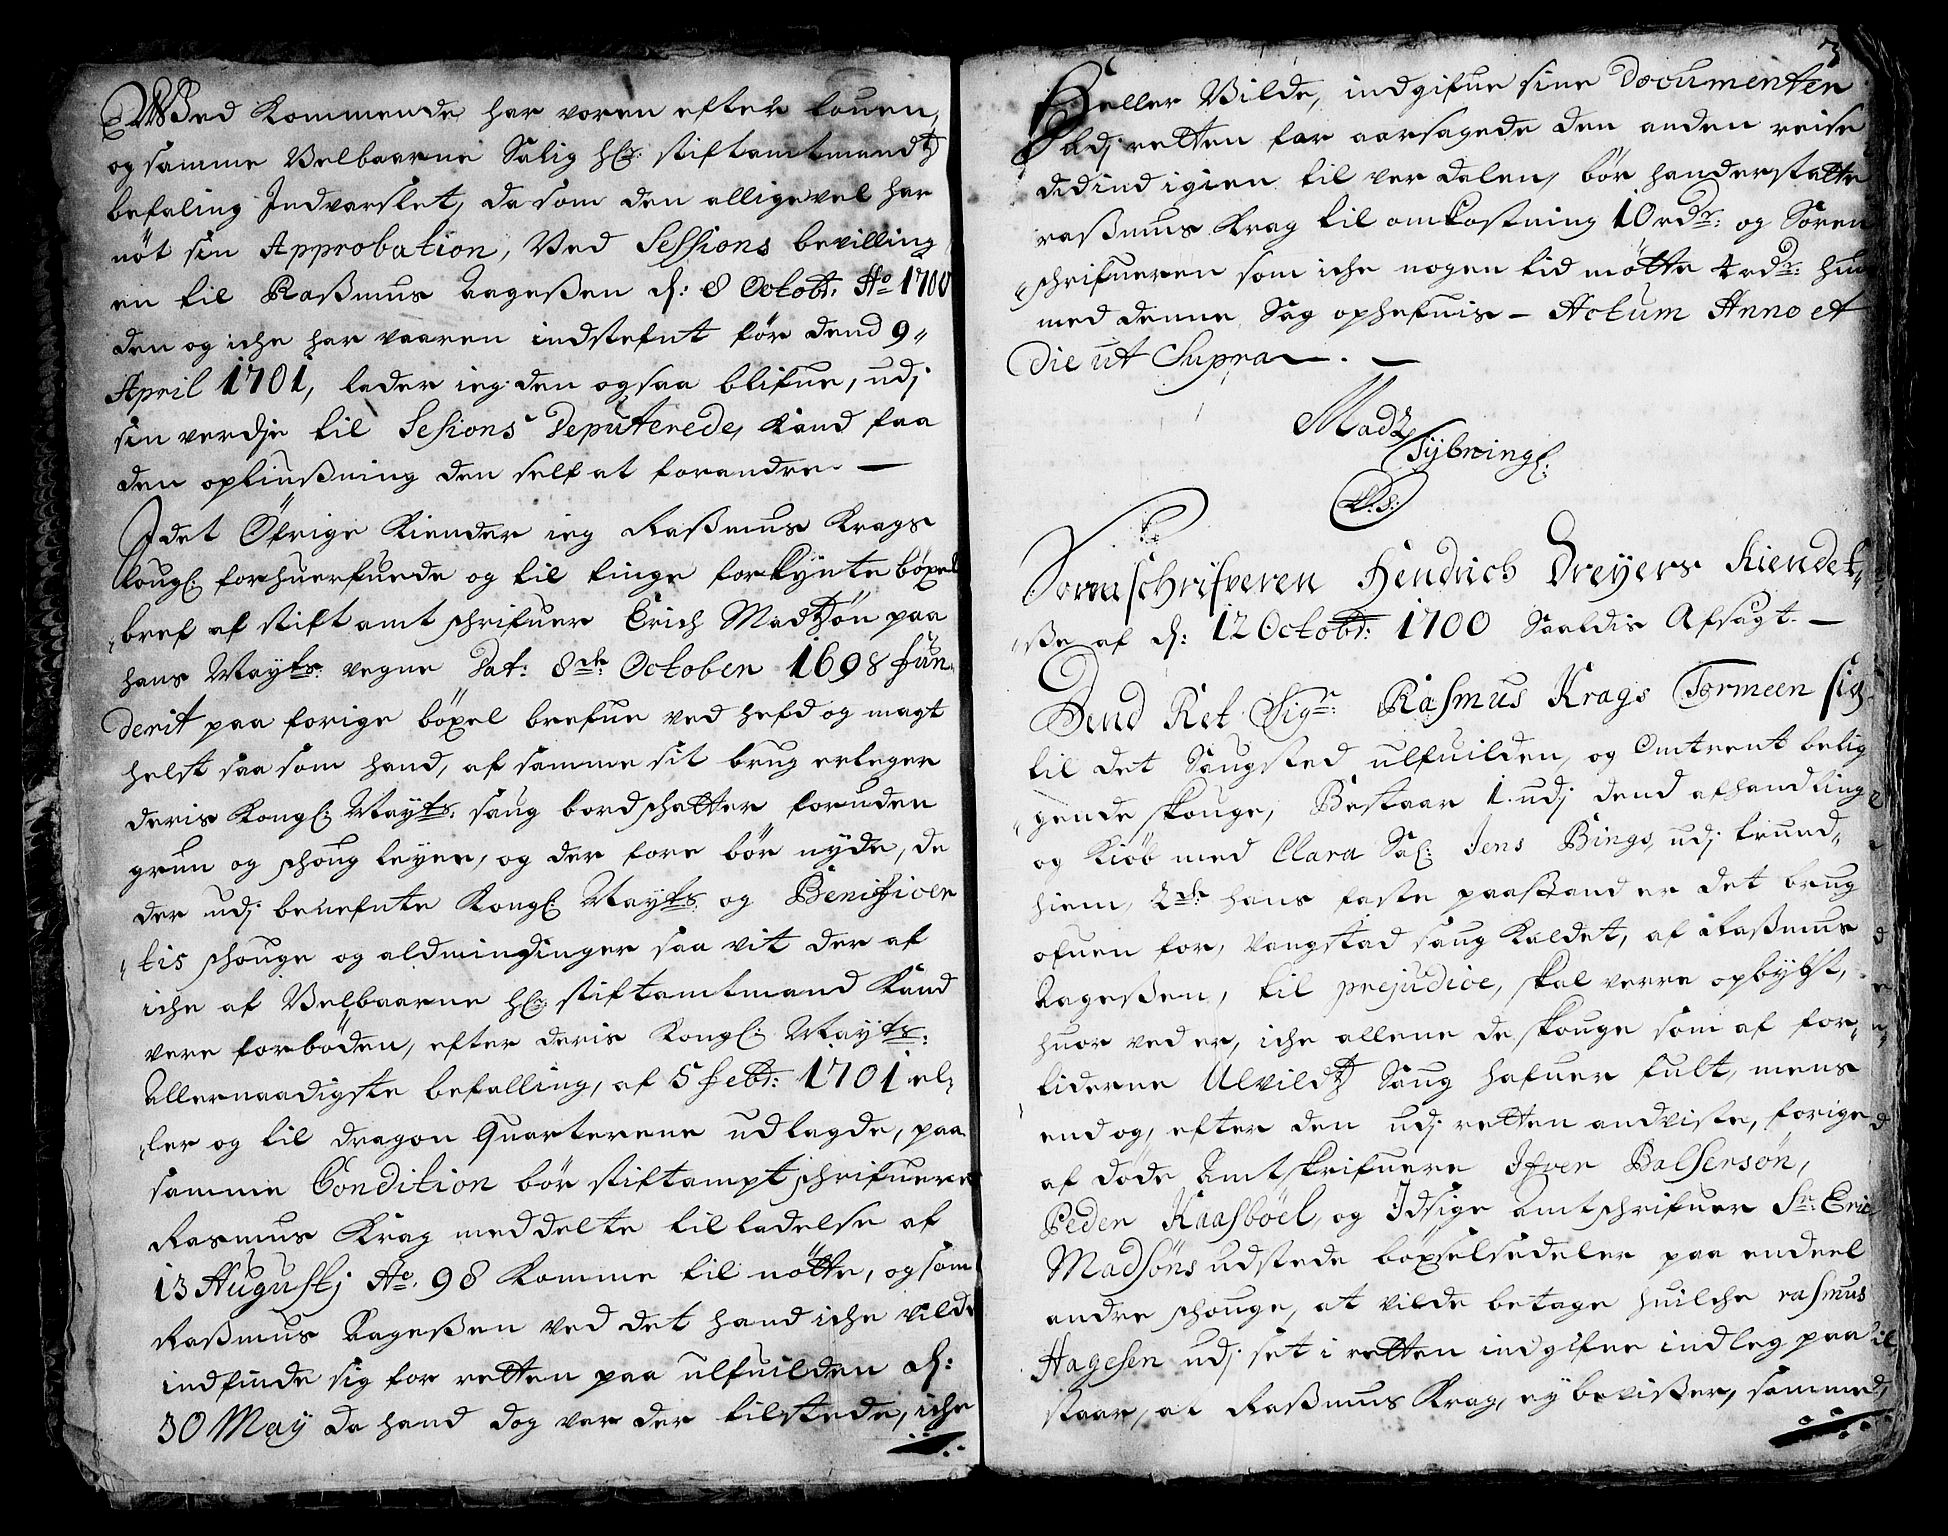 Wed Kommende har voren efter louen,
og samme Velbaarne Salig Hr: stiftamtmandtz
befaling Indvarslet, da som den alligevel har
nöt sin Approbation, Ved Sessions bevilling
en til Raßmus Aageßen d: 8 Octobr: Ao 1700
den og iche har vaaren indstefnt för dend 9„
April 1701, lader ieg den ogsaa blifue, udj
sin verdje til Sesions Deputerede, kand faa
den oplinßning den self at forandre —
I det Öfrige kiender ieg Raßmus Krags
lougl: forhuerfuede og til tinge forkynte böxel
„bref af stiftamt schrifuer Erich Madtzön paa
hans Mayts: vegne Dat: 8de October 1698 fun„
derit paa forige böxel brefue ved hefd og magt
helst saa som hand, af samme sit brug erleger
deris Kongl: Mayts: saug bord schatter foruden
grun og schoug leyer, og der fore bör nyde, de
der udj benefnte Kongl: Mayts: og Benificer
„tis schouge og aldmindinger saa vit der af
iche af Velbaarne Hr: stiftamtmand kand
vere forböden, efter deris Kongl: Mayts:
Allernaadigste befalling, af 5 febr: 1701 el„
„ler og til dragon Quarterene udlagde, paa
samme Condition bör stiftampt schrifueren
Rasmus Krag meddelte tilladelse af
13 Augustj Ao. 98 komme til nötte, og som
Raßmus Aageßen ved det hand iche vilde
indfinde sig for retten paa ulfuilden d:
30 May da hand dog var der tilstede, iche
3
Heller Vilde, indgifue sine Documenter
Udj retten for aarsagede den anden reise
did ind igien til verdalen, bör hand erstatte
raßmus Krag til omkostning 10 rdr: og Soren
„schrifueren som iche nogen tid mötte 4 rdr: hu
med denne Sag ophefuis — Actum Anno et
Die ut Supra — . —
Madz
Sybning:
(L.S:)
Sornschrifveren Hendrich Dreyers kiendel„
„ße af d: 12 Octobr: 1700 Saaldis Afsagt. —
Dend Ret Sigr: Rasmus Krags Formeen sig
til det Saugsted ulfuilden, og Omtrent belig
„gende skouge, Bestaar 1. udj dend afhandling
og kiöb med Clara Sal: Jens Bings, udj trund„
hiem, 2de: hans faste paastand er det brug
ofuen for, vangstad saug kaldet, af Raßmus
Aageßen, til prejudice, skal verre opbygt,
huor ved er, iche allene de skouge som af for„
tiderne Ulvildtz Saug hafuer fult, mens
end og, efter den udj retten andviste, forige
af döde Amtskrifuere Ifver Balsersön,
Peder Kaasböel, og Idsige Amtschrifuer Sr: Eric
Madsöns udstede böxselsedeler paa endeel
andre schouge, at vilde betage huilche rasmus
Hagesen udj set i retten indgifne indleg paa
staar, at Raßmus Krag, ey beviißer, sammed„